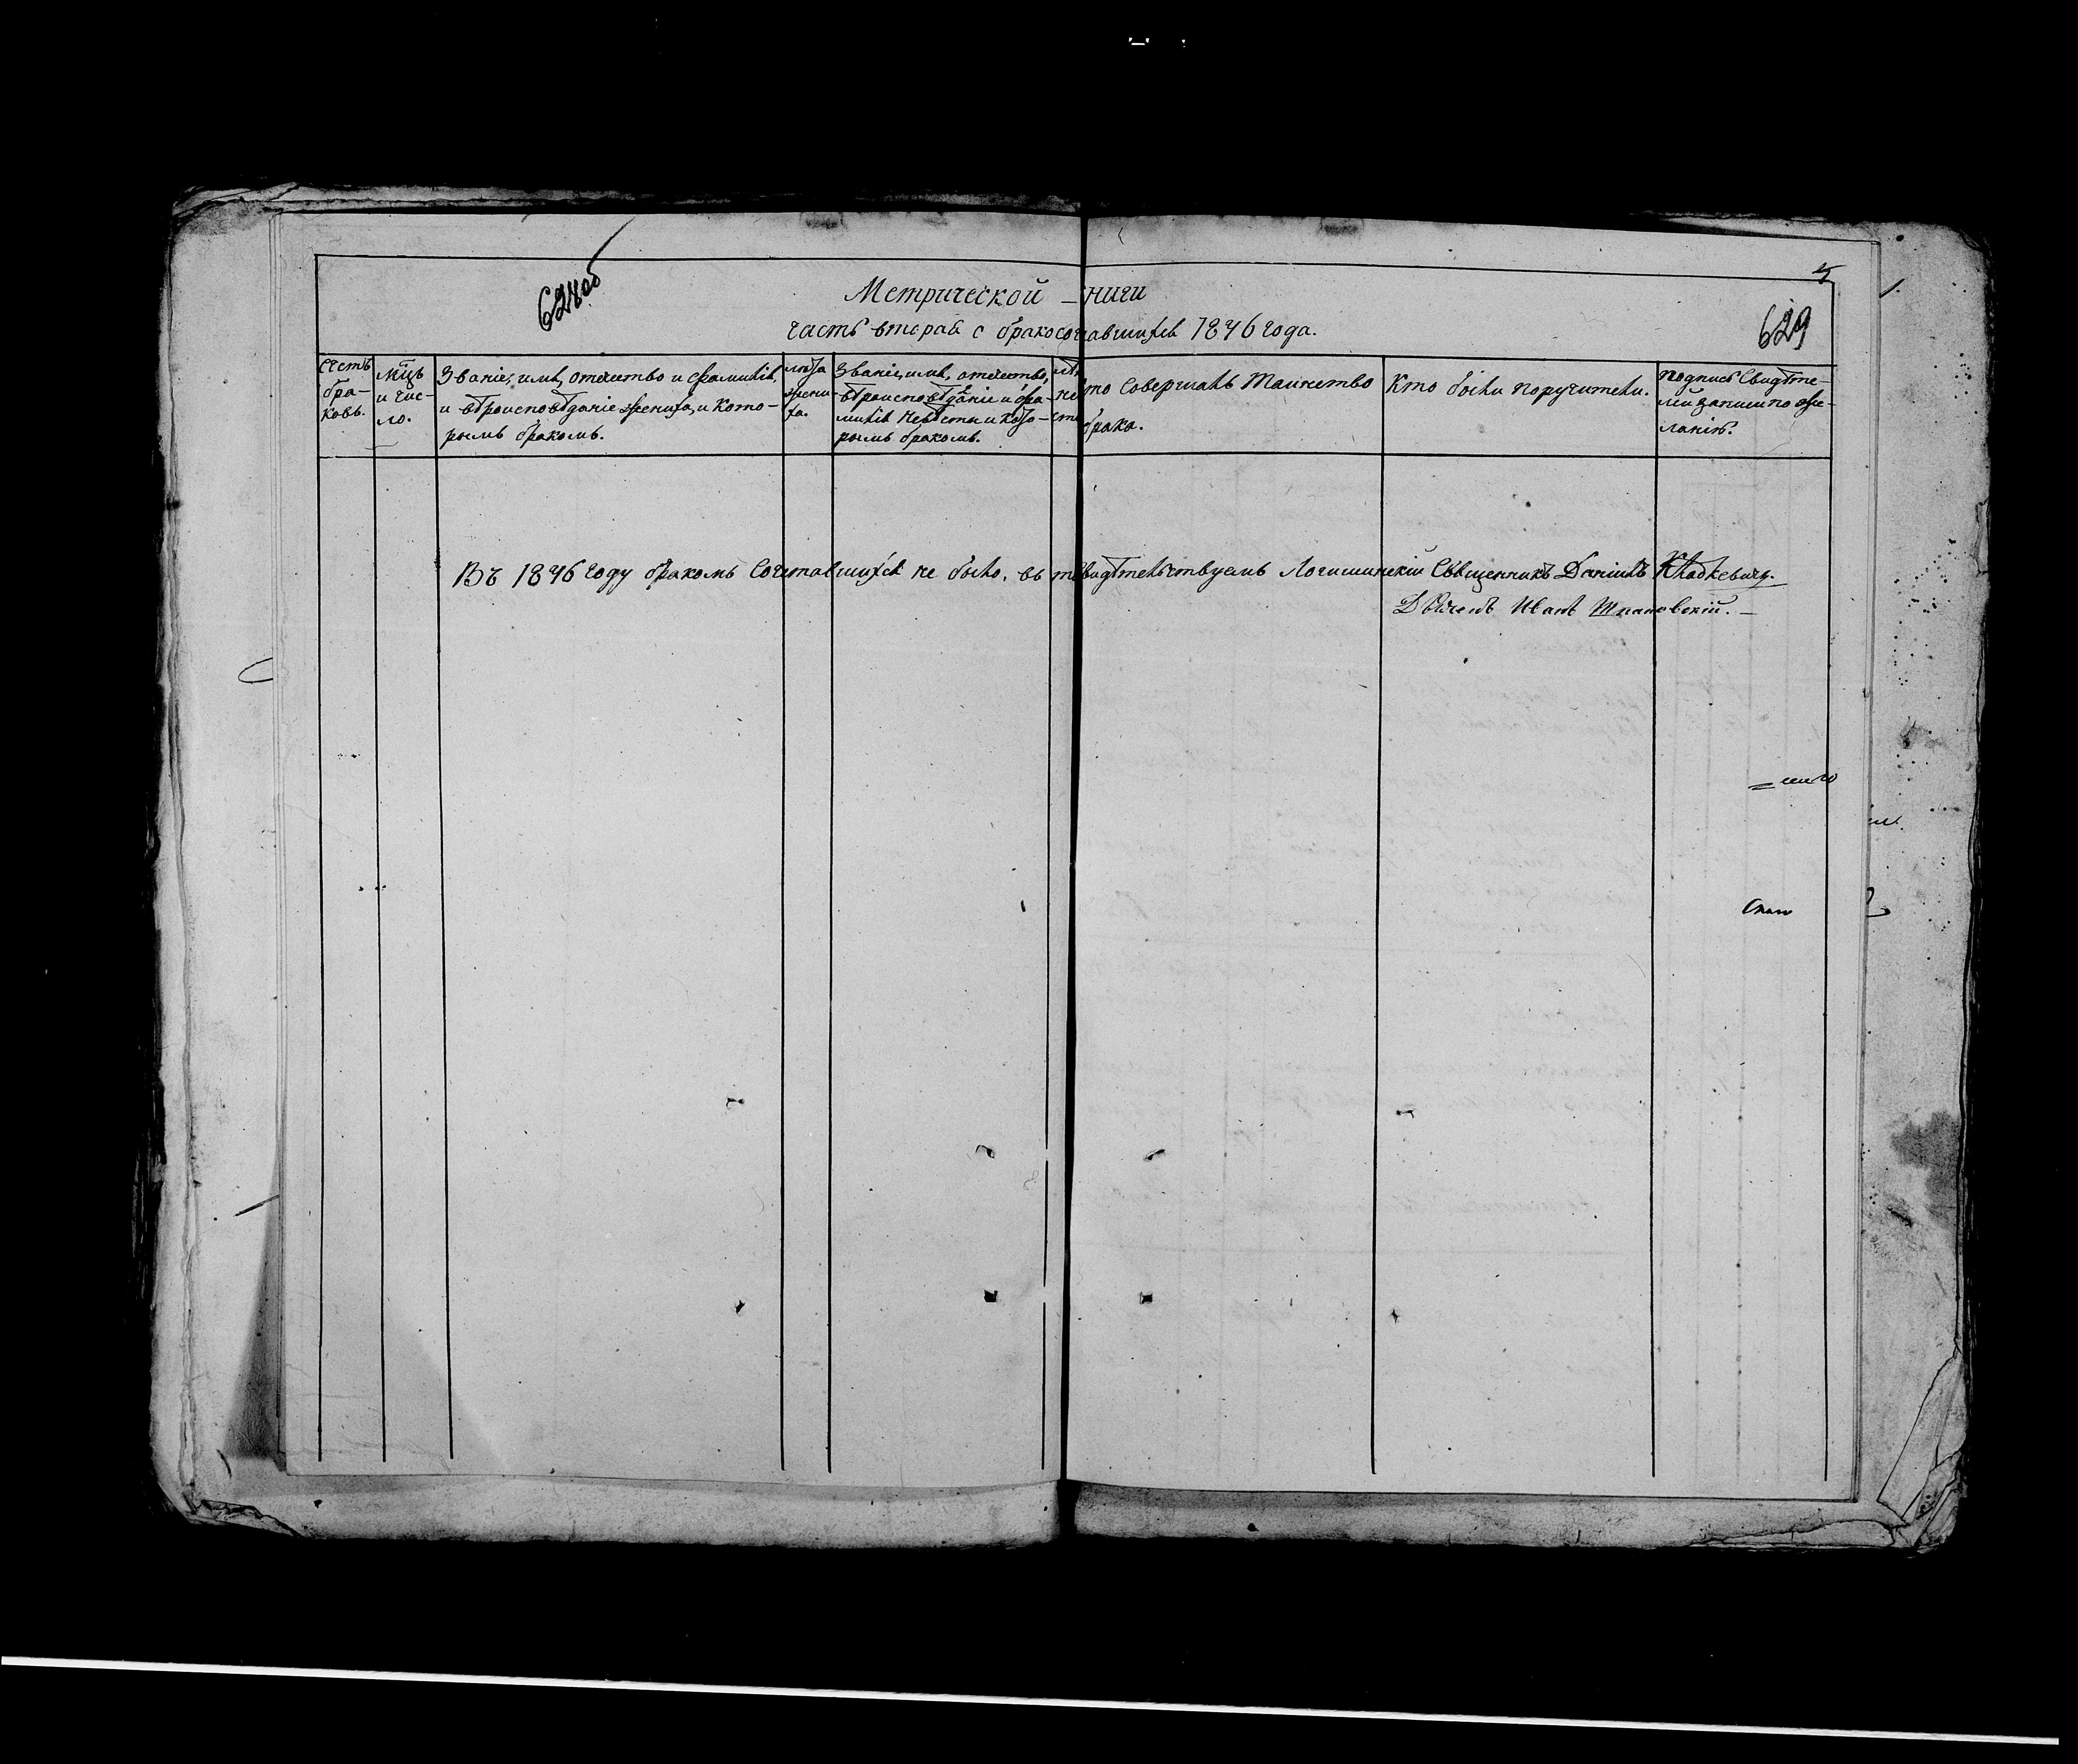 628 об
5
629
Метрической книги
часть вторая о бракосочетавшихся 1846 года.
Счетъ бра-
ковъ.
Мцъ
и чис-
ло.
Званіе, имя, отечество и фамилія,
и вѣроисповѣданіе жениха, и кото-
рымъ бракомъ.
лѣта
жени-
ха.
Званіе, имя, отечество,
вѣроисповѣданіе и фа-
милія невѣсты и кото-
рымъ бракомъ.
Кто совершалъ таинство
брака.
Кто были поручители.
Подпись свидѣте-
лей записи по же-
ланію.
Въ 1846 году бракомъ сочетавшихся не было, въ томъ свидѣтельствуемъ Логишинскій Священникъ Даніилъ
Дьячекъ Иванъ